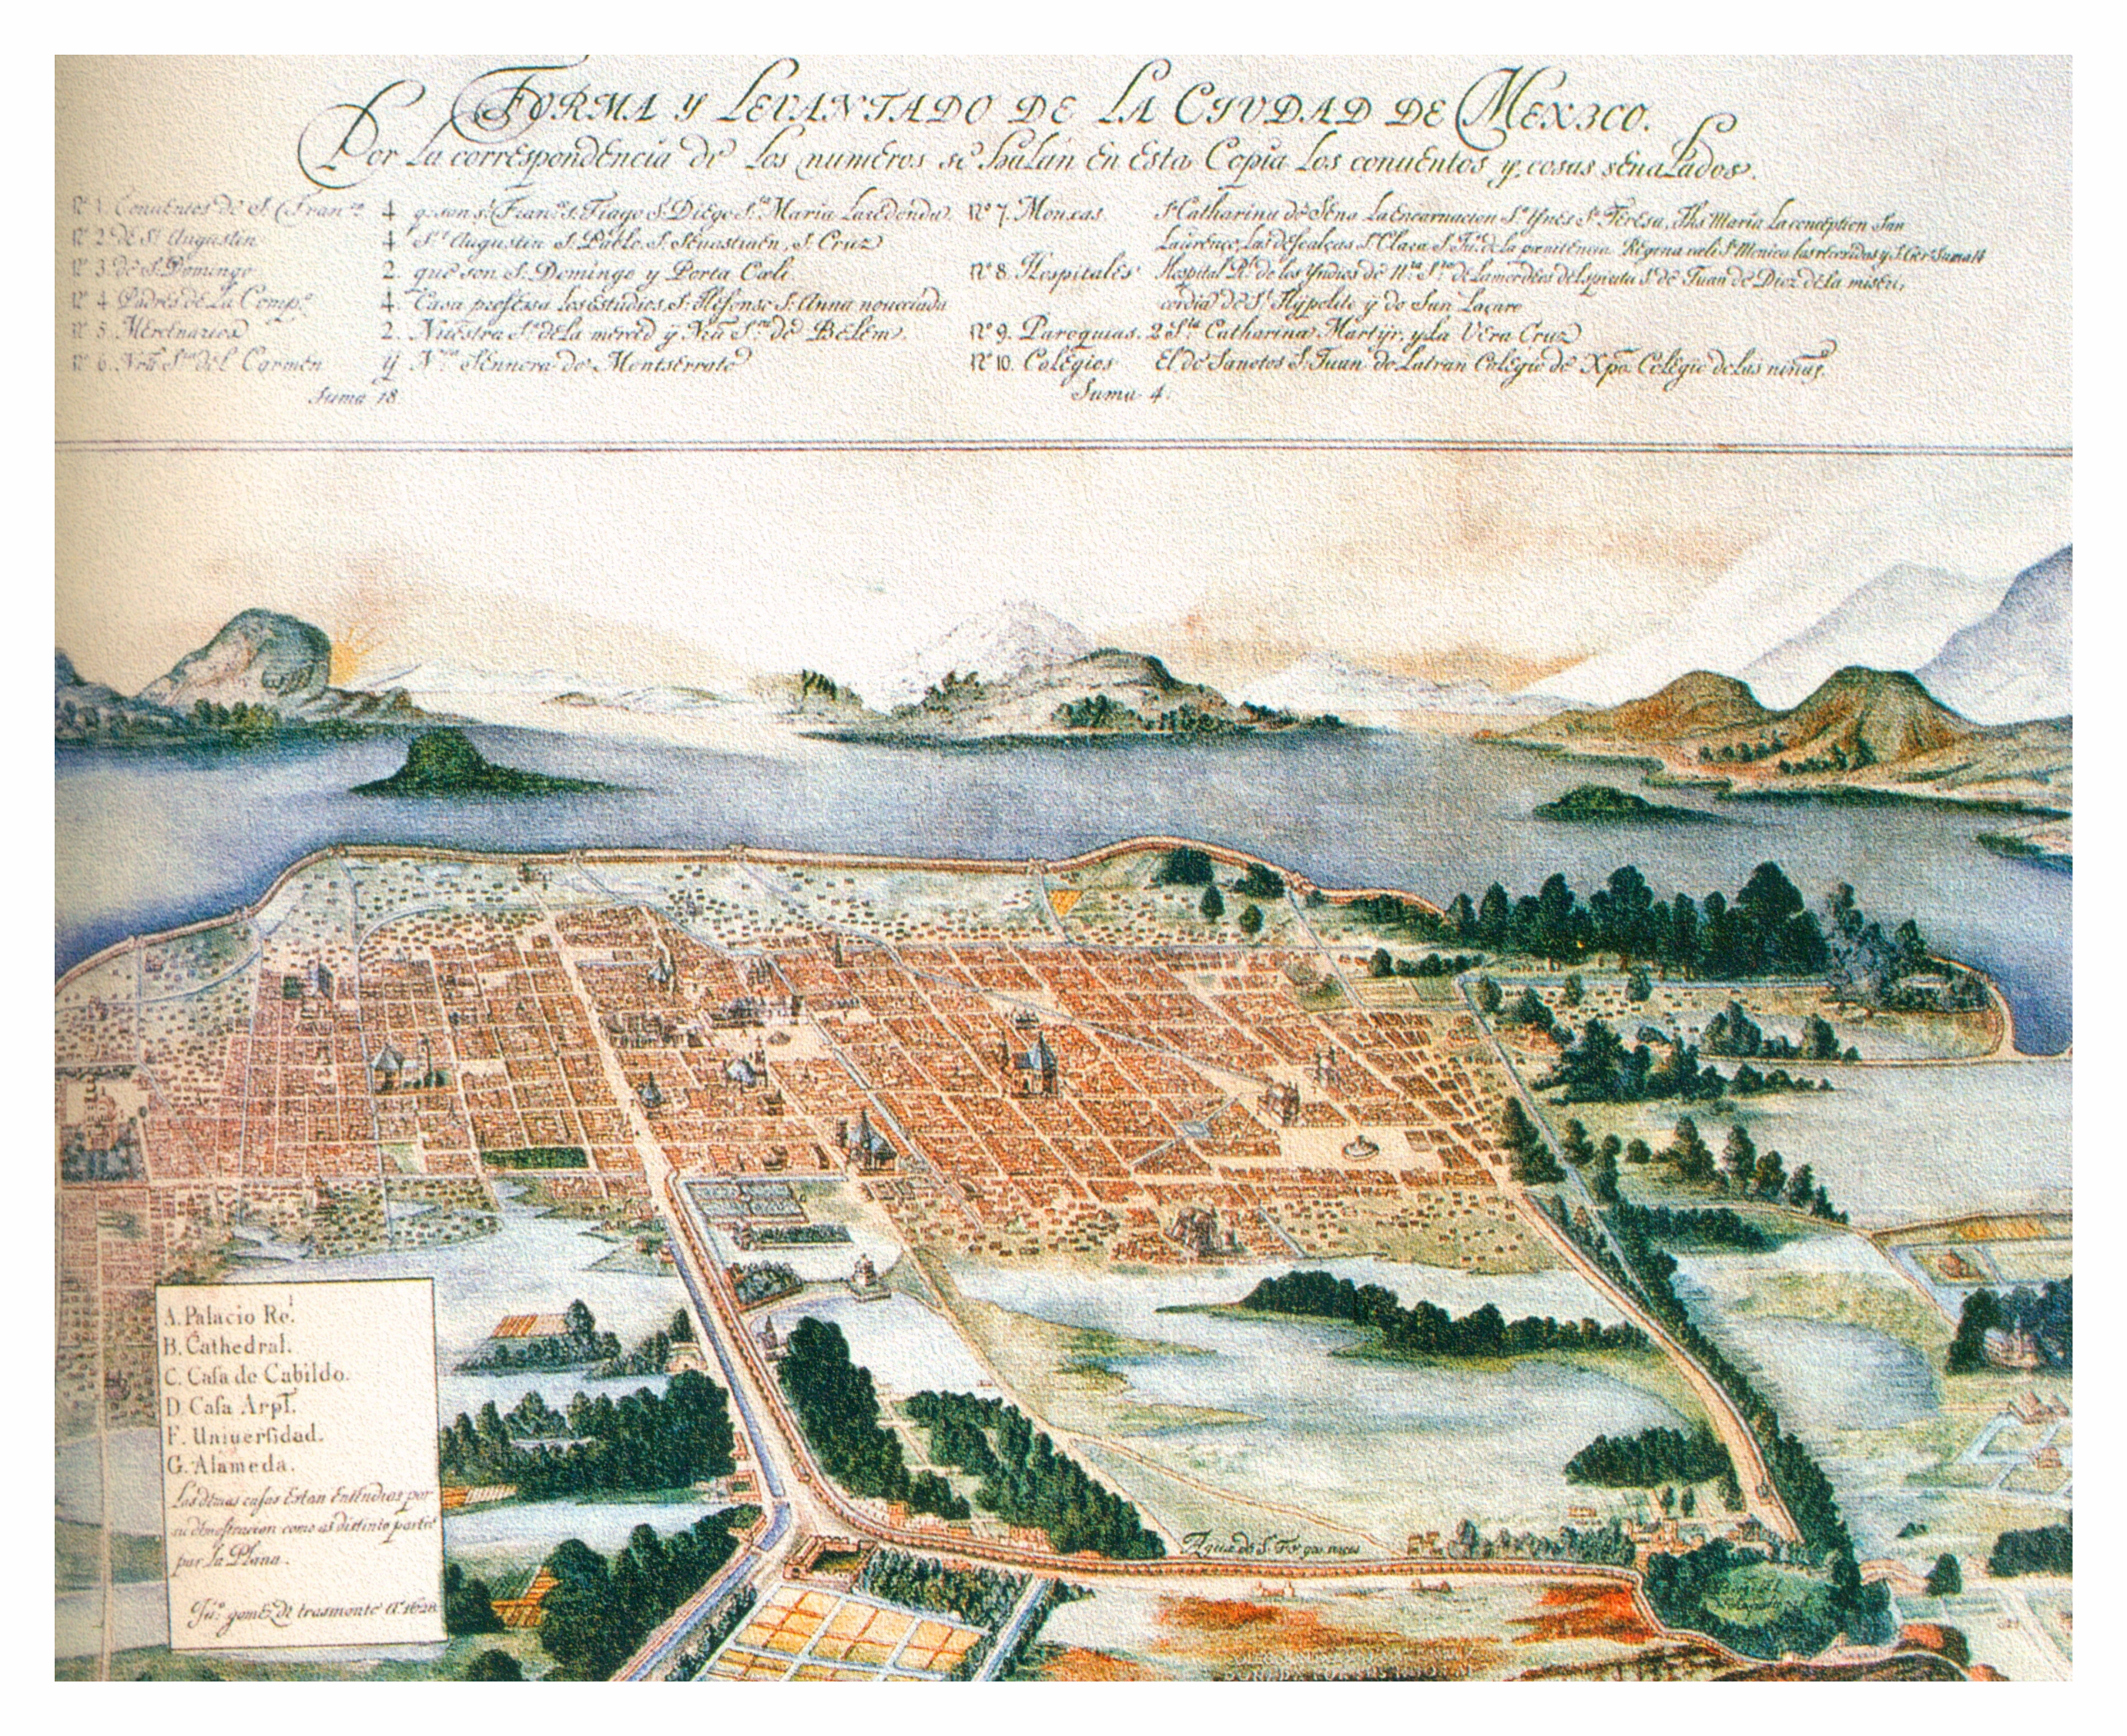 FORMA Y LEVANTADO DE LA CIVDAD DE MEXICO.
Por la correspondencia de los numeros se halan en Esta Copia los conuentos y cosas senalados.
Nº 1. Conuentos de S. Franco. 4 q. son S. Franco. S. Tiago S. Diego Sta. Maria La redonda.
Nº 2. de St. Augustin 4 St. Augustin S. Pablo. S. Seuastiaen, S. Cruz
Nº 3. de S. Domingo 2. que son S. Domingo y Porta Cœli.
Nº 4 Padres de La Compa. 4. Casa professa Los estudios, S. Ildefonse S. Anna nouiciado
Nº 5. Mercenarios 2. Nuestra Sa. de la merced ÿ Nra Sra. de Belem.
Nº 6. Nra Sra del Carmen ÿ Nra Sennora de Montserrate
Suma 18
Nº 7. Monxas. Sa. Catharina de Sena La Encarnacion Sa. Ynes Sa. Teresa, Jhs Maria La conception San
Laurenco, Las descalças S. Clara S. Ju. de La penitencia. Regina celi S. Monica las recoxidas y S. Ger. Suma 14
Nº 8. Hospitales Hospital Rl. de los Yndios de Nra. Sra. de La mor de Dios del spiritu S. de Juan de Dioz de la miseri,
cordia de St. Hÿpolito ÿ do San Laçaro
Nº 9. Paroquias. 2 Sta Catharina Martÿr, y La Vera Cruz
Nº 10. Colegios El de Sanctos S. Juan de Latran Colegio de Xpo. Colegio de las niñas.
Suma 4.
A. Palacio Rel.
B. Cathedral.
C. Casa de Cabildo.
D. Casa Arpl.
F. Uniuersidad.
G. Alameda.
Las demas casas Estan Entendidas por
su demostracion como as distinto partes
por la Plana.
Juo. gomez de trasmonte Ao. 1628
Agua de S.